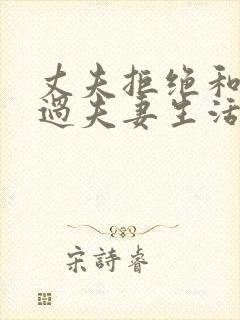 丈夫拒绝和
过夫妻生活
宋詩睿